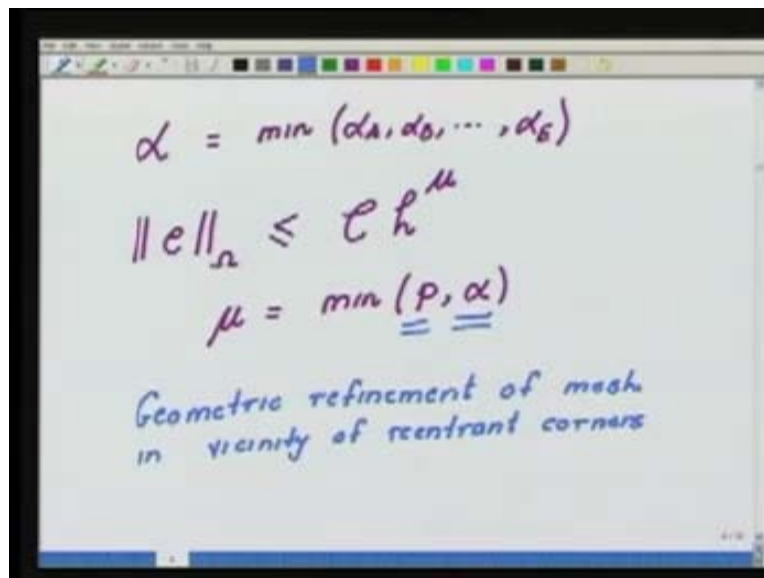 α = min (αA, αB, ..., αE)
||e||Ω ≤ C h^μ
μ = min (p, α)
Geometric refinement of mesh
in vicinity of reentrant corners